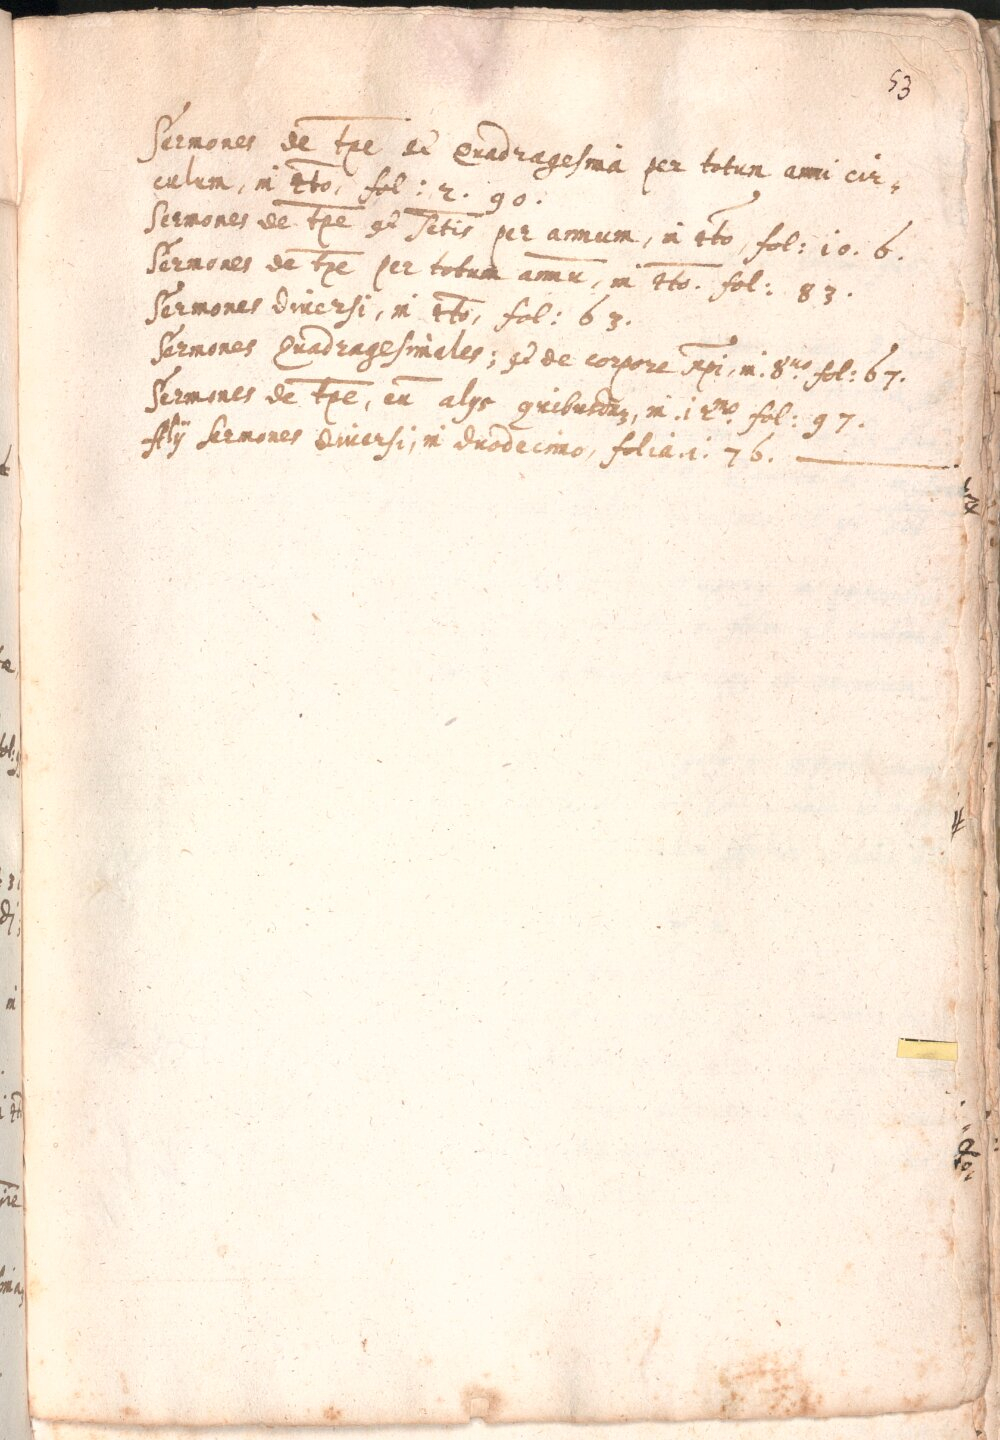 53
Sermones de tp̄e et Quadragesima per totum anni cir-
culum, in 4to, fol: 2. 90.
Sermones de tp̄e et Sc̄tis per annum, in 4to, fol: 10. 6.
Sermones de tp̄e per totum annū, in 4to. fol: 83.
Sermones diversi, in 4to, fol: 63.
Sermones Quadragesimales; et de corpore Xp̄i, in 8uo. fol: 67.
Sermones de tp̄e, cū alijs quibusdā, in 12mo. fol: 97.
Alij sermones diversi, in duodecimo, folia 1. 76.